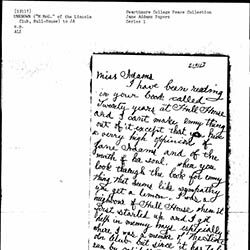 [1915?]
UNKNOWN ("M McG." of the Lincoln
Club, Hull-House) to JA
ALS
Swarthmore College Peace Collection
Jane Addams Papers
Series 1
Miss Adams
I have been reading
in your book called
Twenty years at Hull House
and I cant make enny thing
out of it except that you have
a very high oppinion of
Jane Adams and of the
worth of her soul. when you
look through the book for enny
thing that seems like sympathy
you get a lemon. I was a
neighbor of Hull House when it
first started up and I got
help in menny ways, especially
where I was a member of the Lincoln
Club but since it has